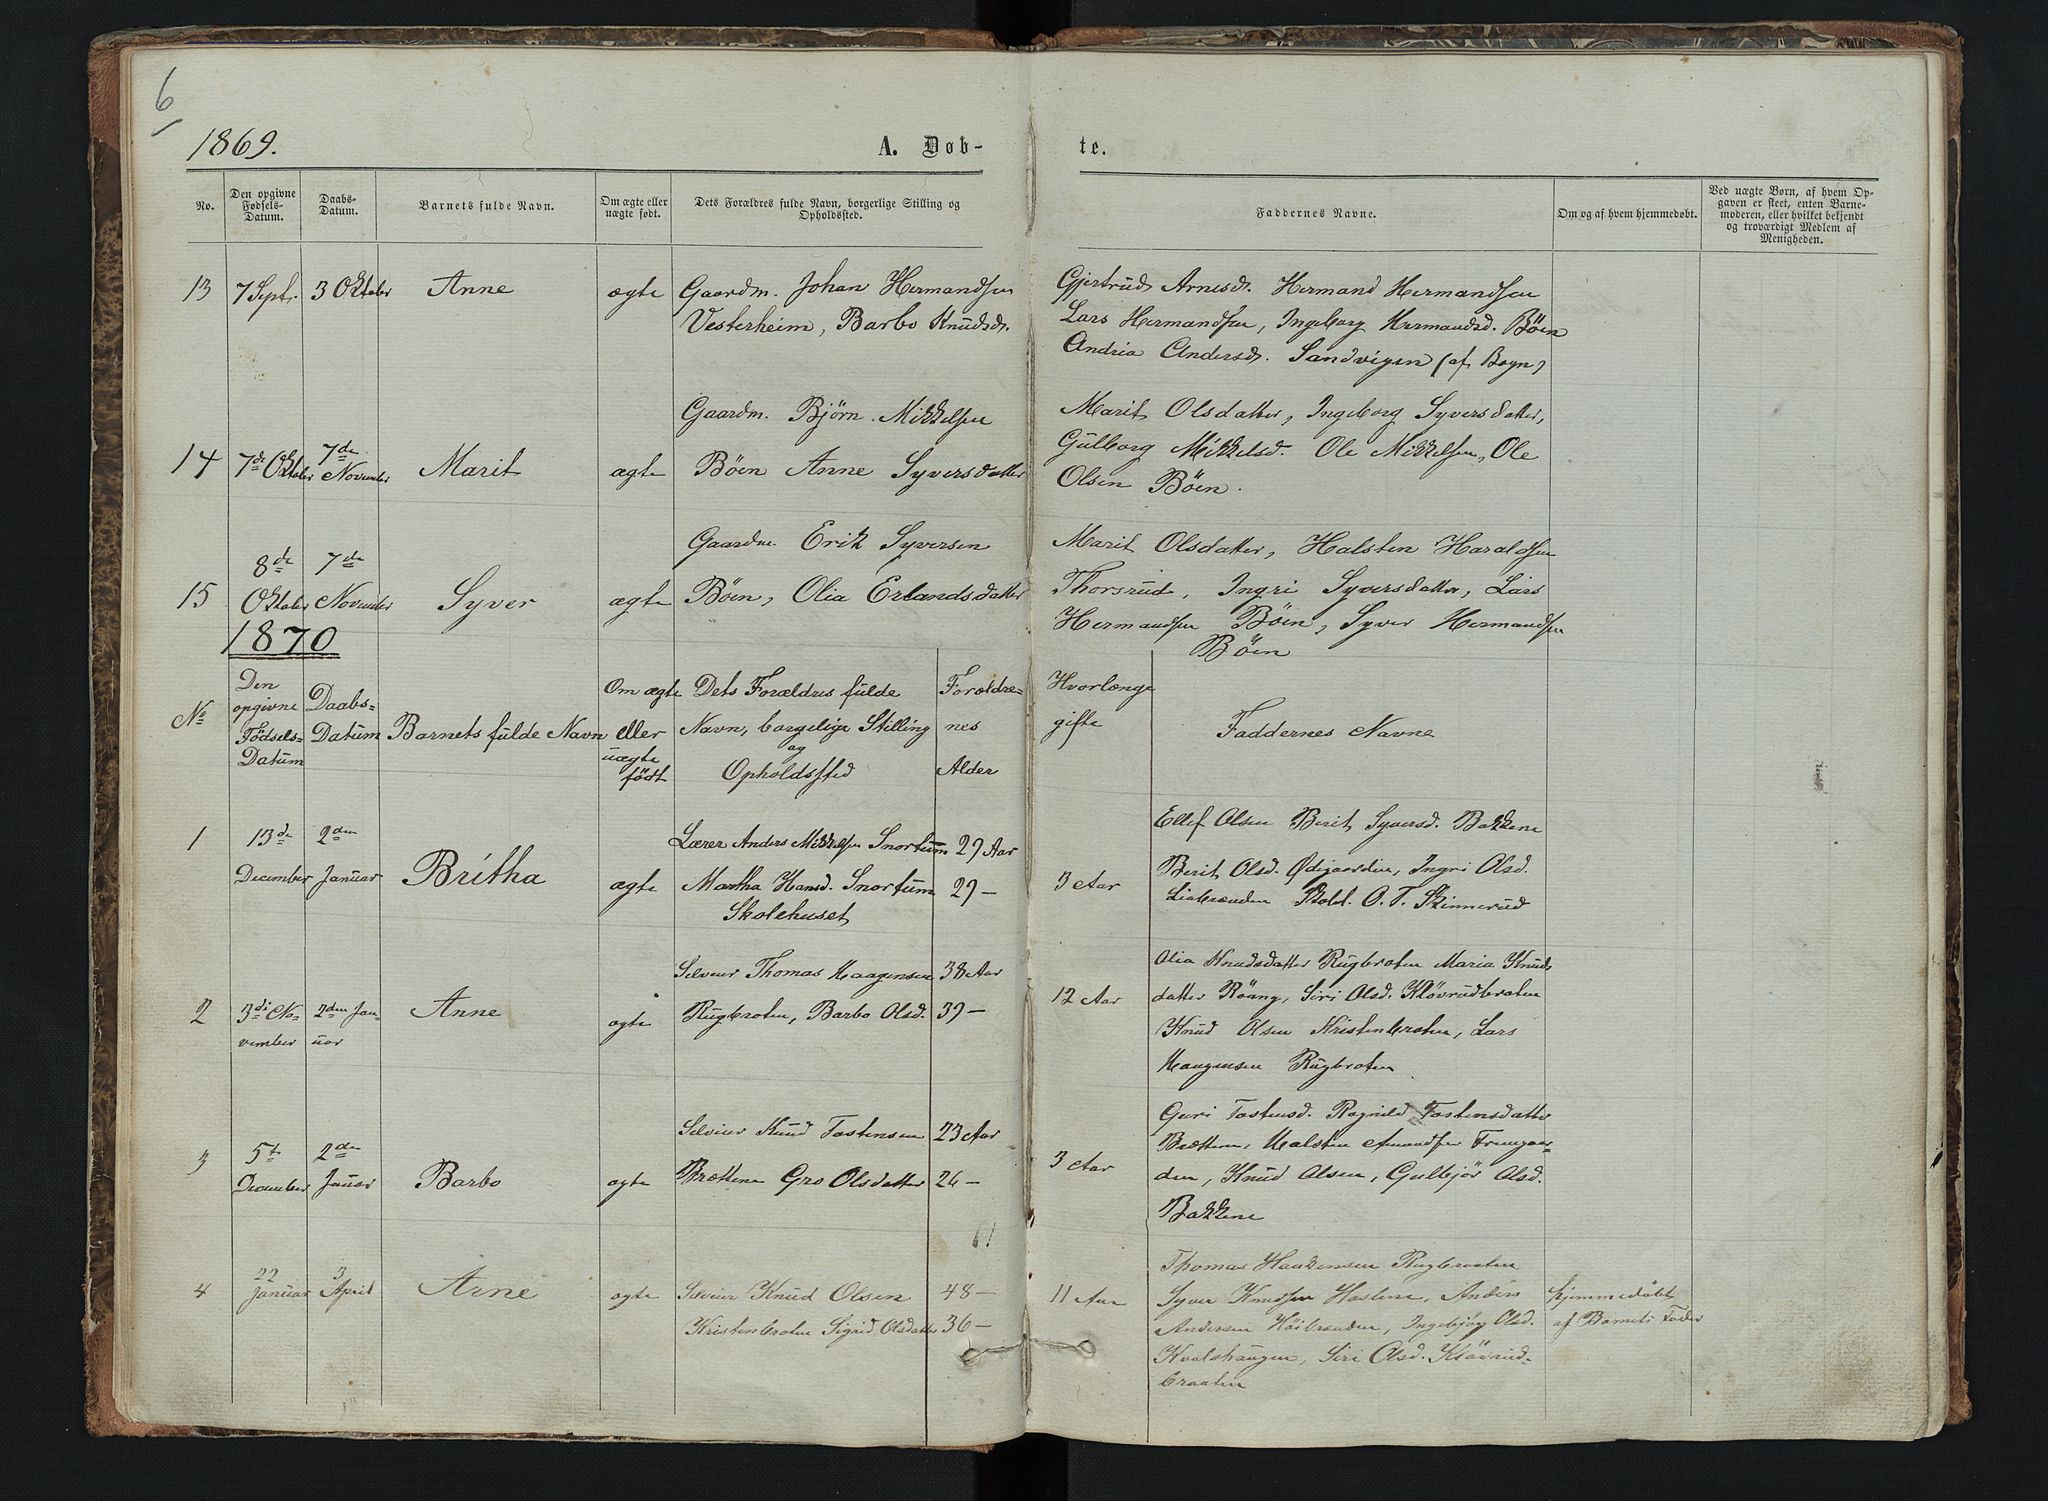 6
1869.
A. Døb-
te.
No.
Den opgivne Fødsels-Datum.
Daabs-Datum.
Barnets fulde Navn.
Om ægte eller uægte født.
Dets Forældres fulde Navn, borgerlige Stilling og Opholdssted.
Faddernes Navne.
Om og af hvem hjemmedøbt.
Ved uægte Børn, af hvem Op-
gaven er skeet, enten Barne-
moderen, eller hvilket bekjendt
og troværdigt Medlem af
Menigheden.
13 7 Septr 3 Oktober Anne ægte Gaardm. Johan Hermandsen
Vesterheim, Barbo Knudsd.
Gjertrud Arnesd. Hermand Hermandsen
Lars Hermandsen, Ingeborg Hermandsd. Böen
Andria Andersd. Sandvigen (af Bagn)
14 7de Oktober 7de November Marit ægte
Gaardm. Bjørn Mikkelsen
Böen Anne Syversdatter
Marit Olsdatter, Ingeborg Syversdatter,
Gulborg Mikkelsd. Ole Mikkelsen, Ole
Olsen Böen.
15 8de Oktober 7de November Syver ægte
Gaardm Erik Syversen
Böen, Olia Erlandsdatter
Marit Olsdatter, Halsten Haraldsen
Thorsrud, Ingri Syversdatter, Lars
Hermandsen Böen, Syver Hermandsen
Böen
1870
No
Den opgivne Födsels-Datum
Daabs-Datum
Barnets fulde Navn
Om ægte eller uægte födt
Dets Forældres fulde
Navn, borgelige Stilling
og
Opholdssted
Forældre-
nes
Alder
Hvorlænge
gifte
Faddernes Navne
1 13de December 2den Januar Britha ægte
Lærer Anders Mikkelsen Snortum 29 Aar
Martha Hansd. Snortum 29 —
Skolehuset
3 Aar
Ellef Olsen Berit Syversd. Bakkene
Berit Olsd. Ødegaarden, Ingri Olsd.
Liabrænden O. T. Skinnerud
2 3di November 2den Januar Anne ægte
Selveier Thomas Haagensen 38 Aar
Rugbroten, Barbo Olsd. 39 —
12 Aar
Olia Knudsdatter Rugbroten Maria Knuds
datter Röang, Siri Olsd. Klövrudbroten
Knud Olsen Kristenbroten, Lars
Haagensen Rugbroten
3 5te December 2den Januar Barbo ægte
Selveier Knud Tostensen 23 Aar
Brættene Gro Olsdatter 26 —
3 Aar
Guri Tostensd. Ragnild Tostensdatter
Brættene, Halsten Amundsen Fremgaar-
den, Knud Olsen, Gulbjör Olsd.
Bakkene
61
4 22 Januar 3 April Arne ægte
Selveier Knud Olsen 48 —
Kristenbroten Sigrid Olsdatter 36 —
11 Aar
Thomas Haakensen Rugbroten
Syver Knudsen Haslene, Anders
Andersen Höibrænden, Ingebjør Olsd.
Kvalshaugen, Siri Olsd. Klövrud-
braaten
Hjemmedöbt
af Barnets Fader